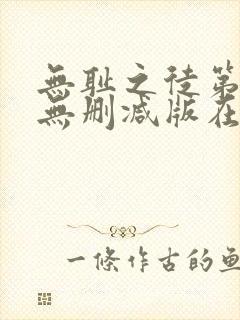 無耻之徒第
無删减版在
一條作古的魚